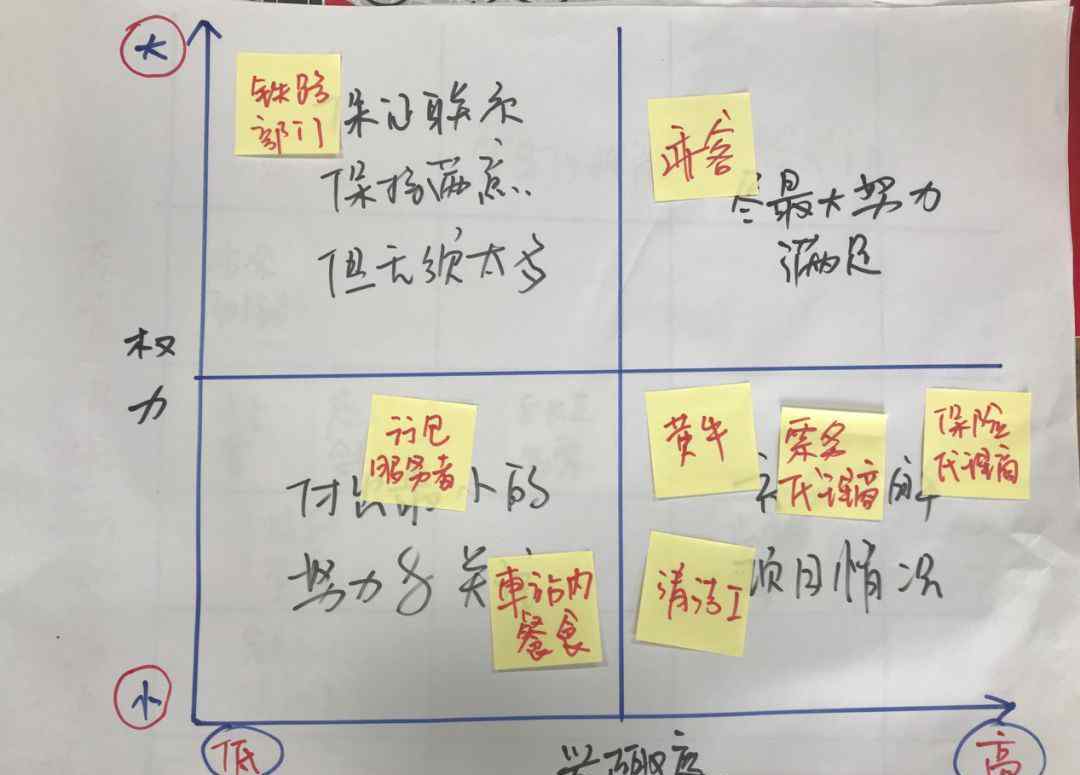 大
铁路
部门
保证联系
保持满意
但无须太多
乘客
尽最大努力
满足
权
力
订包
服务者
付出 小的
努力 关
車站内
餐食
黄牛
票务
代理商
保险
代理商
清洁工
项目情况
小
低
高